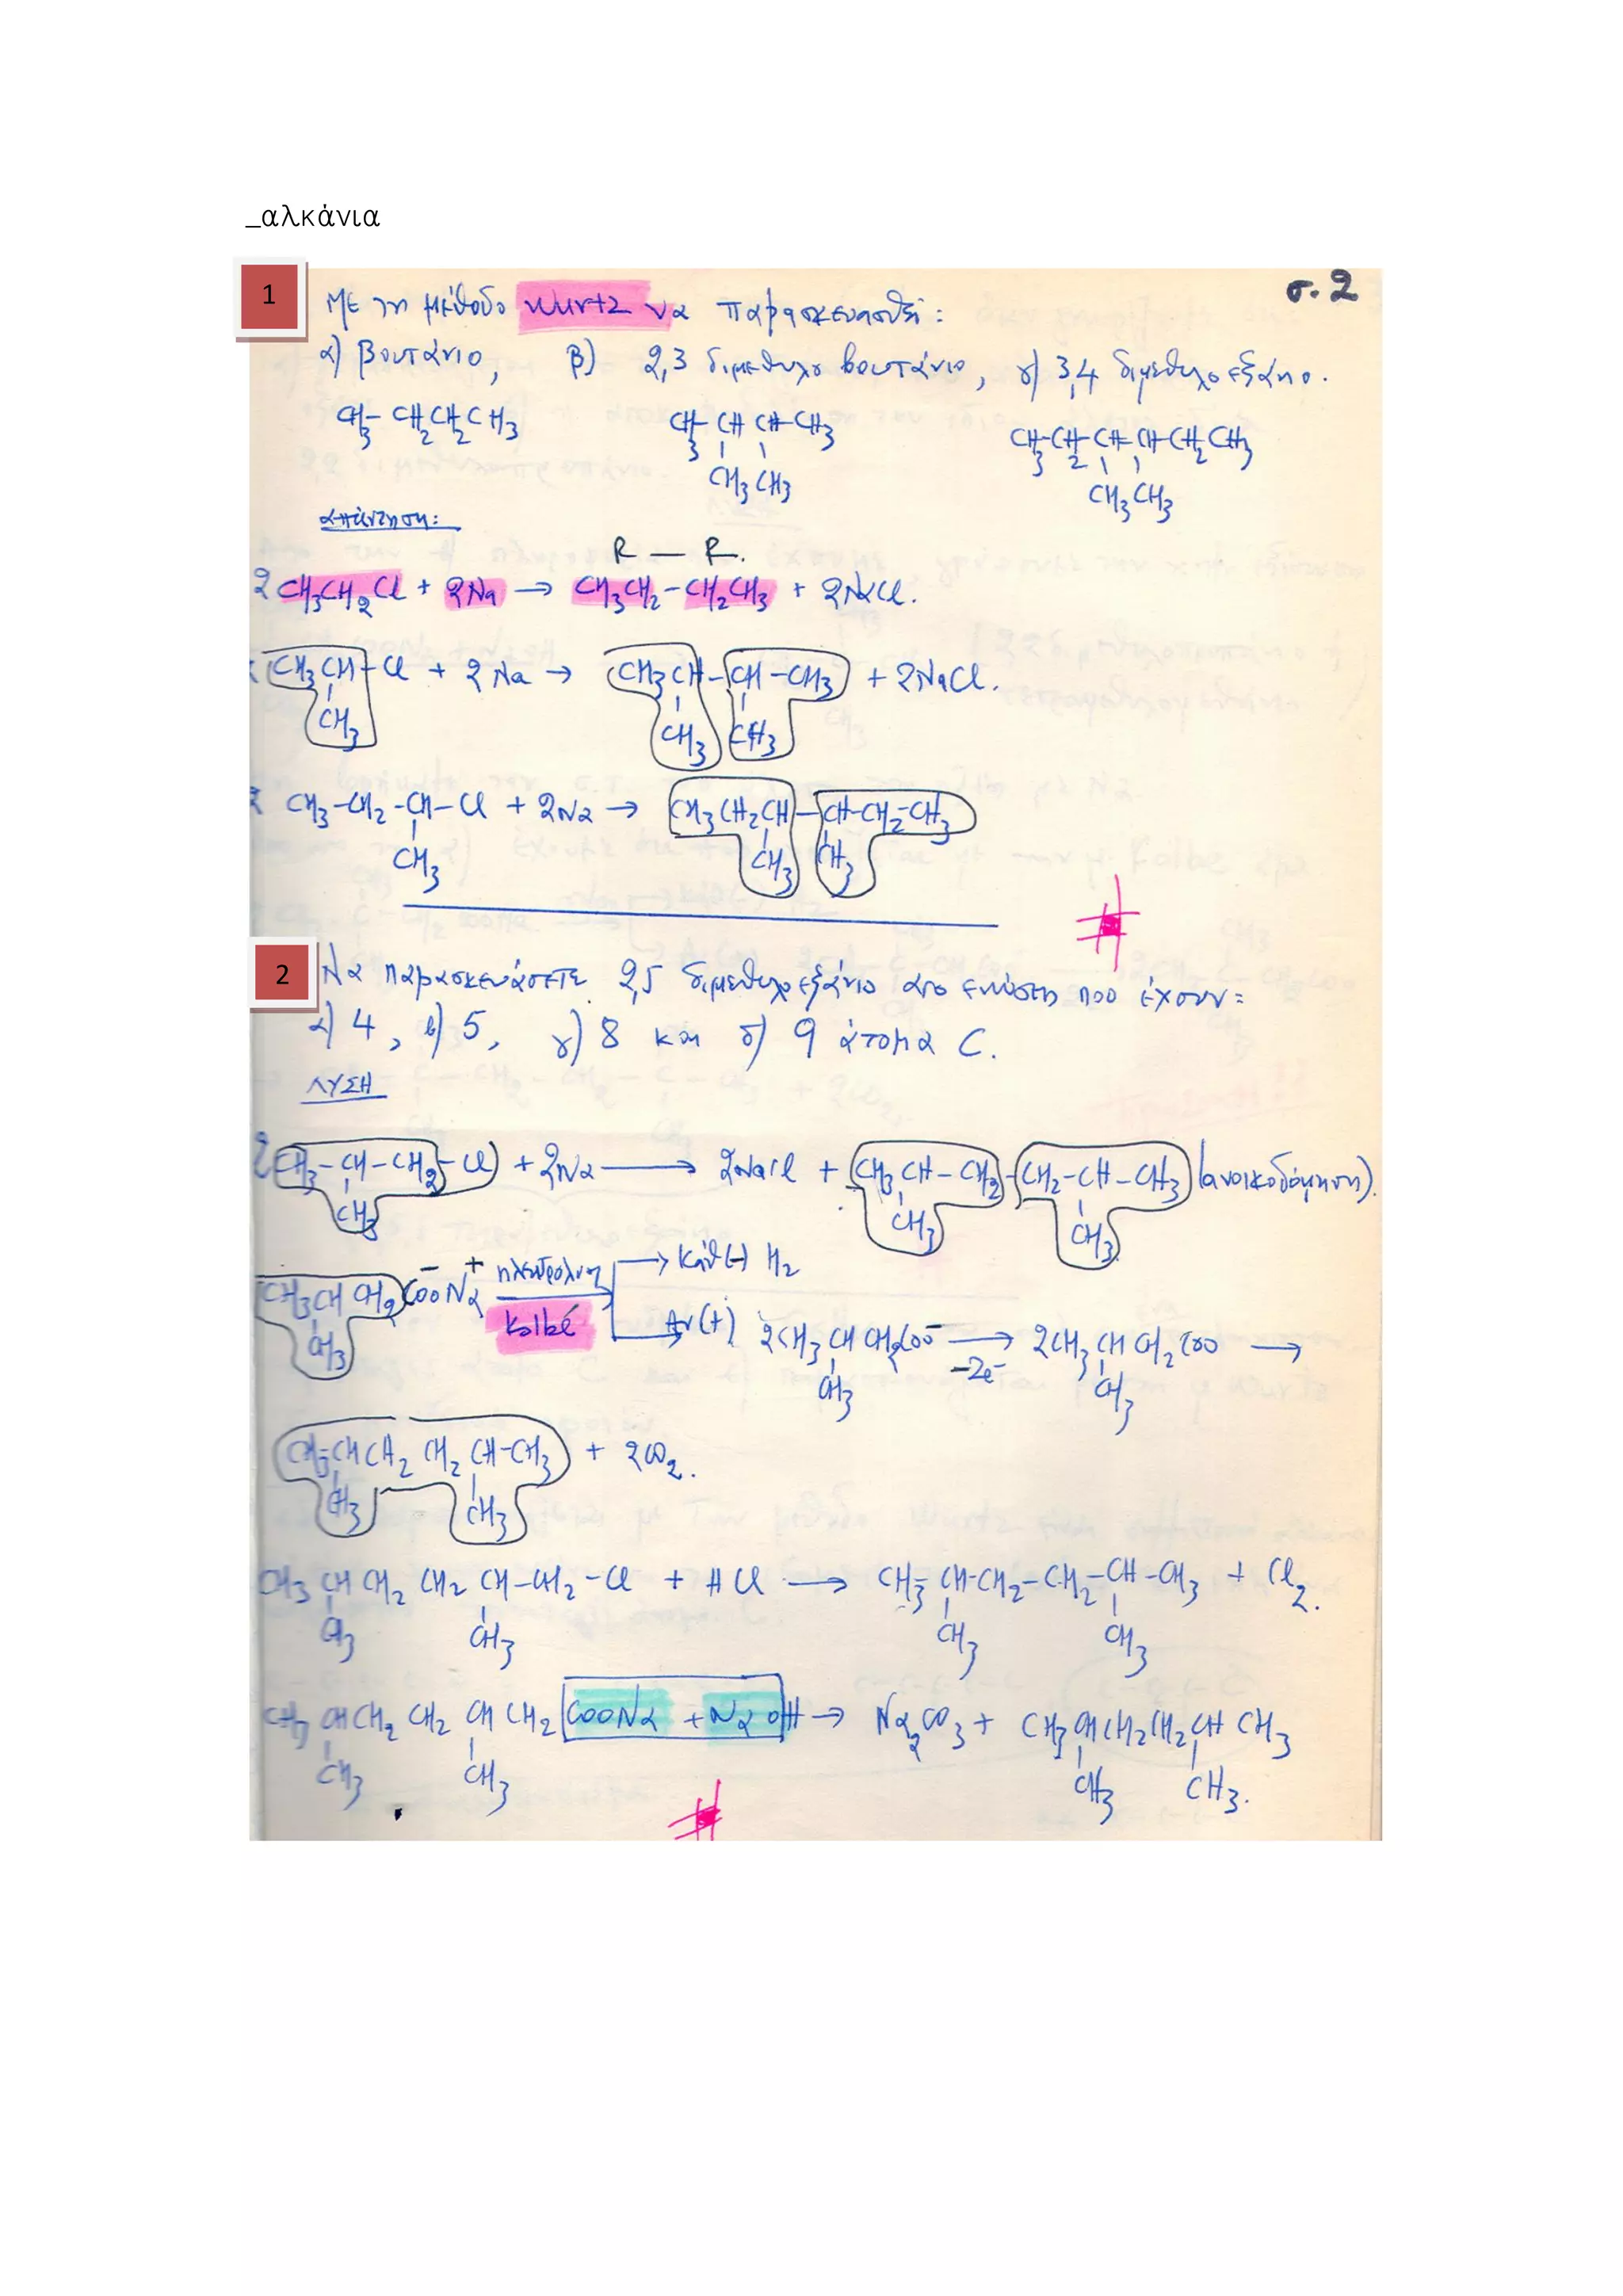 _αλκάνια
σ.2
1 Με τη μέθοδο Wurtz να παρασκευασθεί:
α) βουτάνιο, β) 2,3 διμεθυλο βουτάνιο, γ) 3,4 διμεθυλοεξάνιο.
CH3-CH2CH2CH3 CH3-CH CH-CH3 CH3-CH2-CH-CH-CH2CH3
CH3 CH3 CH3 CH3
απάντηση:
R — R.
2 CH3CH2Cl + 2Na → CH3CH2-CH2CH3 + 2NaCl.
CH3CH-Cl + 2Na → CH3CH-CH-CH3 + 2NaCl.
CH3 CH3 CH3
2 CH3-CH2-CH-Cl + 2Na → CH3CH2CH-CH-CH2-CH3
CH3 CH3 CH3
2 Να παρασκευάσετε 2,5 διμεθυλοεξάνιο από ενώση που έχουν:
α) 4, β) 5, γ) 8 και δ) 9 άτομα C.
ΛΥΣΗ
2CH3-CH-CH2-Cl + 2Na → 2NaCl + CH3CH-CH2-CH2-CH-CH3 (ανοικοδόμηση).
CH3 CH3 CH3
CH3CH CH2COO⁻Na⁺ ηλεκτρόλυση → Κάθ(-) H2
CH3 Kolbé → Αν(+) 2CH3CH CH2COO⁻ → 2CH3CH CH2COO →
CH3 -2e⁻ CH3
CH3-CHCH2 CH2CH-CH3 + 2CO2.
CH3 CH3
CH3 CH CH2 CH2 CH-CH2-Cl + HCl → CH3-CH-CH2-CH2-CH-CH3 + Cl2.
CH3 CH3 CH3 CH3
CH3 CHCH2 CH2 CH CH2 COONa + NaOH → Na2CO3 + CH3CHCH2CH2CH CH3
CH3 CH3 CH3 CH3.